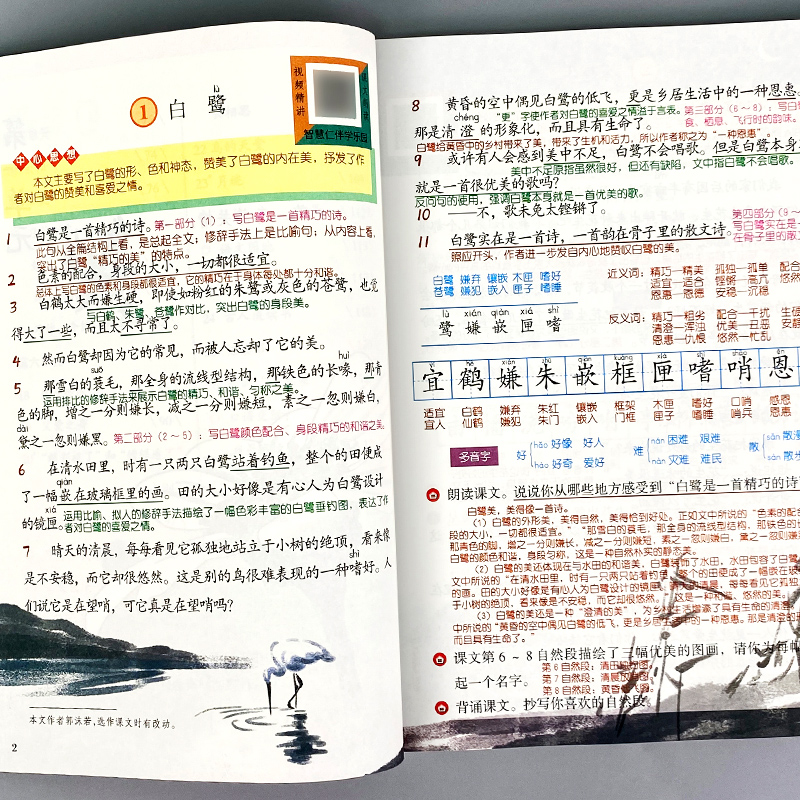 视频精讲
智慧仁伴学乐园
lù
1 白鹭
中心思想
本文主要写了白鹭的形、色和神态，赞美了白鹭的内在美，抒发了作
者对白鹭的赞美和喜爱之情。
1 白鹭是一首精巧的诗。第一部分（1）：写白鹭是一首精巧的诗。
此句从全篇结构上看，是总起全文；修辞手法上是比喻句；从内容上看，
突出了白鹭“精巧的美”的特点。
2 色素的配合，身段的大小，一切都很适宜。
总体上写白鹭的色素和身段都很适宜，它的精巧在于身体每处都十分和谐。
3 白鹤太大而嫌生硬，即使如粉红的朱鹭或灰色的苍鹭，也觉
与白鹤、朱鹭、苍鹭作对比，突出白鹭的身段美。
得大了一些，而且太不寻常了。
4 然而白鹭却因为它的常见，而被人忘却了它的美。
suō huì
5 那雪白的蓑毛，那全身的流线型结构，那铁色的长喙，那青
运用排比的修辞手法来展示白鹭的精巧、和谐、匀称之美。
色的脚，增之一分则嫌长，减之一分则嫌短，素之一忽则嫌白，
dài
黛之一忽则嫌黑。第二部分（2～5）：写白鹭颜色配合、身段精巧的和谐之美。
6 在清水田里，时有一只两只白鹭站着钓鱼，整个的田便成
qiàn
了一幅嵌在玻璃框里的画。田的大小好像是有心人为白鹭设计
xiá
的镜匣。运用比喻、拟人的修辞手法描绘了一幅色彩丰富的白鹭垂钓图，表达了作
者对白鹭的喜爱之情。
7 晴天的清晨，每每看见它孤独地站立于小树的绝顶，看来像
shì
是不安稳，而它却很悠然。这是别的鸟很难表现的一种嗜好。人
们说它是在望哨，可它真是在望哨吗？
本文作者郭沫若，选作课文时有改动。
2
8 黄昏的空中偶见白鹭的低飞，更是乡居生活中的一种恩惠
chéng “更”字使作者对白鹭的喜爱之情溢于言表。第三部分（6～8）：写白鹭
那是清澄的形象化，而且具有生命了。 食、栖息、飞行时的韵味。
白鹭给黄昏中的乡村带来了美，带来了生机和活力，所以作者称之为“一种恩惠”。
9 或许有人会感到美中不足，白鹭不会唱歌。但是白鹭本身
美中不足原指虽然很好，但还有缺陷，文中指白鹭不会唱歌。
就是一首很优美的歌吗？
反问句的使用，强调白鹭本身就是一首优美的歌。
10 ——不，歌未免太铿锵了。 第四部分（9～
11 白鹭实在是一首诗，一首韵在骨子里的散文诗。 写白鹭实在是
照应开头，作者进一步发自内心地赞叹白鹭的美。 在骨子里的散文
白鹭 嫌弃 镶嵌 木匣 嗜好
苍鹭 嫌犯 嵌入 匣子 嗜睡
近义词：精巧—精美 孤独—孤单 配合
适宜—适合 铿锵—高亢 悠然
恩惠—恩德 安稳—沉稳
lù xián qiàn xiá shì
鹭 嫌 嵌 匣 嗜
反义词：精巧—粗劣 配合—干扰 生硬
清澄—浑浊 优美—丑恶 安静
恩惠—仇恨 悠然—忙乱
yí hè xián zhū qiàn kuàng xiá shì shào ēn
宜 鹤 嫌 朱 嵌 框 匣 嗜 哨 恩
适宜 白鹤 嫌弃 朱红 镶嵌 框架 木匣 嗜好 口哨 感恩
宜人 仙鹤 嫌犯 朱门 嵌入 门框 匣子 嗜睡 哨兵 恩惠
多音字
好 hǎo 好像 好人
hào 好奇 爱好
难 nán 困难 艰难
nàn 灾难 难民
散 sǎn 散漫
sàn 散步
朗读课文。说说你从哪些地方感受到“白鹭是一首精巧的诗
白鹭美，美得像一首诗。
（1）白鹭的外形美，美得自然，美得恰到好处。正如文中所说的“色素的配合
段的大小，一切都很适宜。”“那雪白的蓑毛，那全身的流线型结构，那铁色的长
那青色的脚，增之一分则嫌长，减之一分则嫌短，素之一忽则嫌白，黛之一忽则嫌
白鹭的颜色和谐，身段匀称，这是一种自然朴实的静态美。
（2）白鹭的美还体现在与水田的和谐美，白鹭装饰了水田，水田包容了白鹭
文中所说的“在清水田里，时有一只两只站着钓鱼，整个的田便成了一幅嵌在玻
的画。田的大小好像是有心人为白鹭设计的镜匣。晴天的清晨，每每看见它孤独
于小树的绝顶，看来像是不安稳，而它却很悠然。”这是一种和谐、悠然的美。
（3）白鹭的美还是一种“澄清的美”，为乡居生活增添了具有生命的清澄，
中所说的“黄昏的空中偶见白鹭的低飞，更是乡居生活中的一种恩惠。那是清澄的
而且具有生命了。”
课文第6～8自然段描绘了三幅优美的图画，请你为每幅
第6自然段：清田
起一个名字。 第7自然段：清晨
第8自然段：黄昏
背诵课文。抄写你喜欢的自然段。